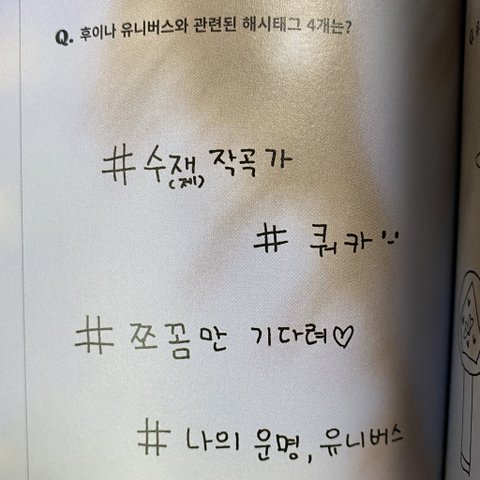 Q. 후이나 유니버스와 관련된 해시태그 4개는?
# 수재 작곡가
(제)
# 쿼카
# 쪼꼼만 기다려♡
# 나의 운명, 유니버스